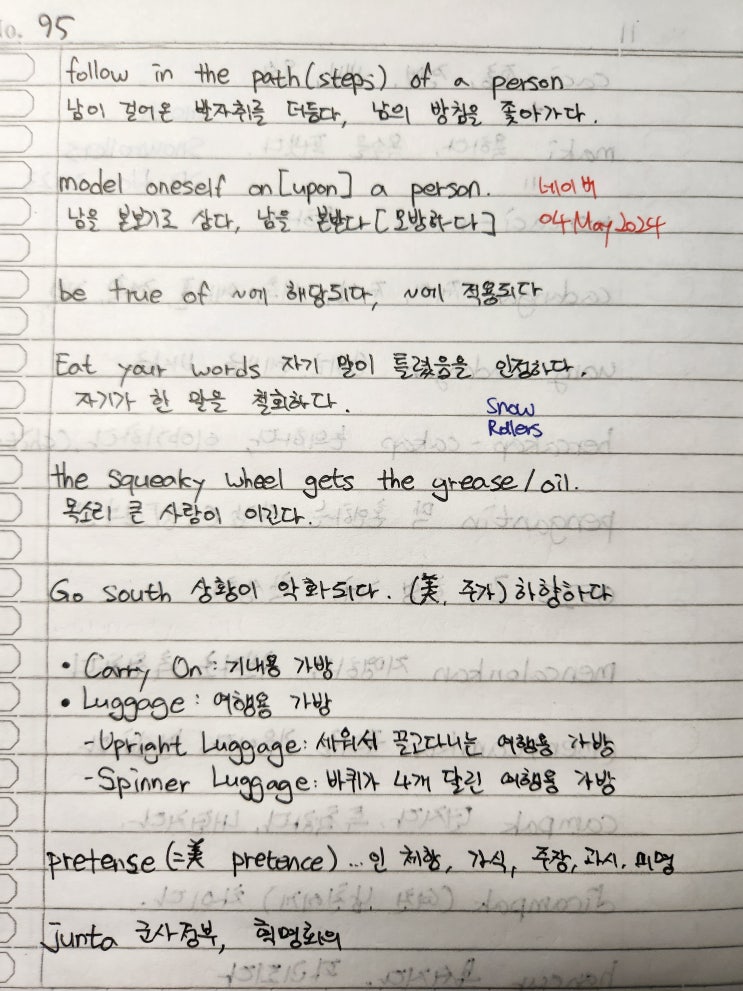 No. 95
follow in the path(steps) of a person
남이 걸어온 발자취를 더듬다, 남의 방침을 좇아가다.
model oneself on[upon] a person. 네이버
남을 본보기로 삼다, 남을 본받다[모방하다] 04 May 2024
be true of ~에 해당되다, ~에 적용되다
Eat your words 자기 말이 틀렸음을 인정하다.
자기가 한 말을 철회하다.
Snow
Rollers
the squeaky wheel gets the grease/oil.
목소리 큰 사람이 이긴다.
Go south 상황이 악화되다. (美, 주가)하향하다
• Carry On : 기내용 가방
• Luggage : 여행용 가방
-Upright Luggage: 세워서 끌고다니는 여행용 가방
-Spinner Luggage: 바퀴가 4개 달린 여행용 가방
pretense (=美 pretence) ...인 체함, 가식, 주장, 과시. 미명
junta 군사정부, 혁명회의